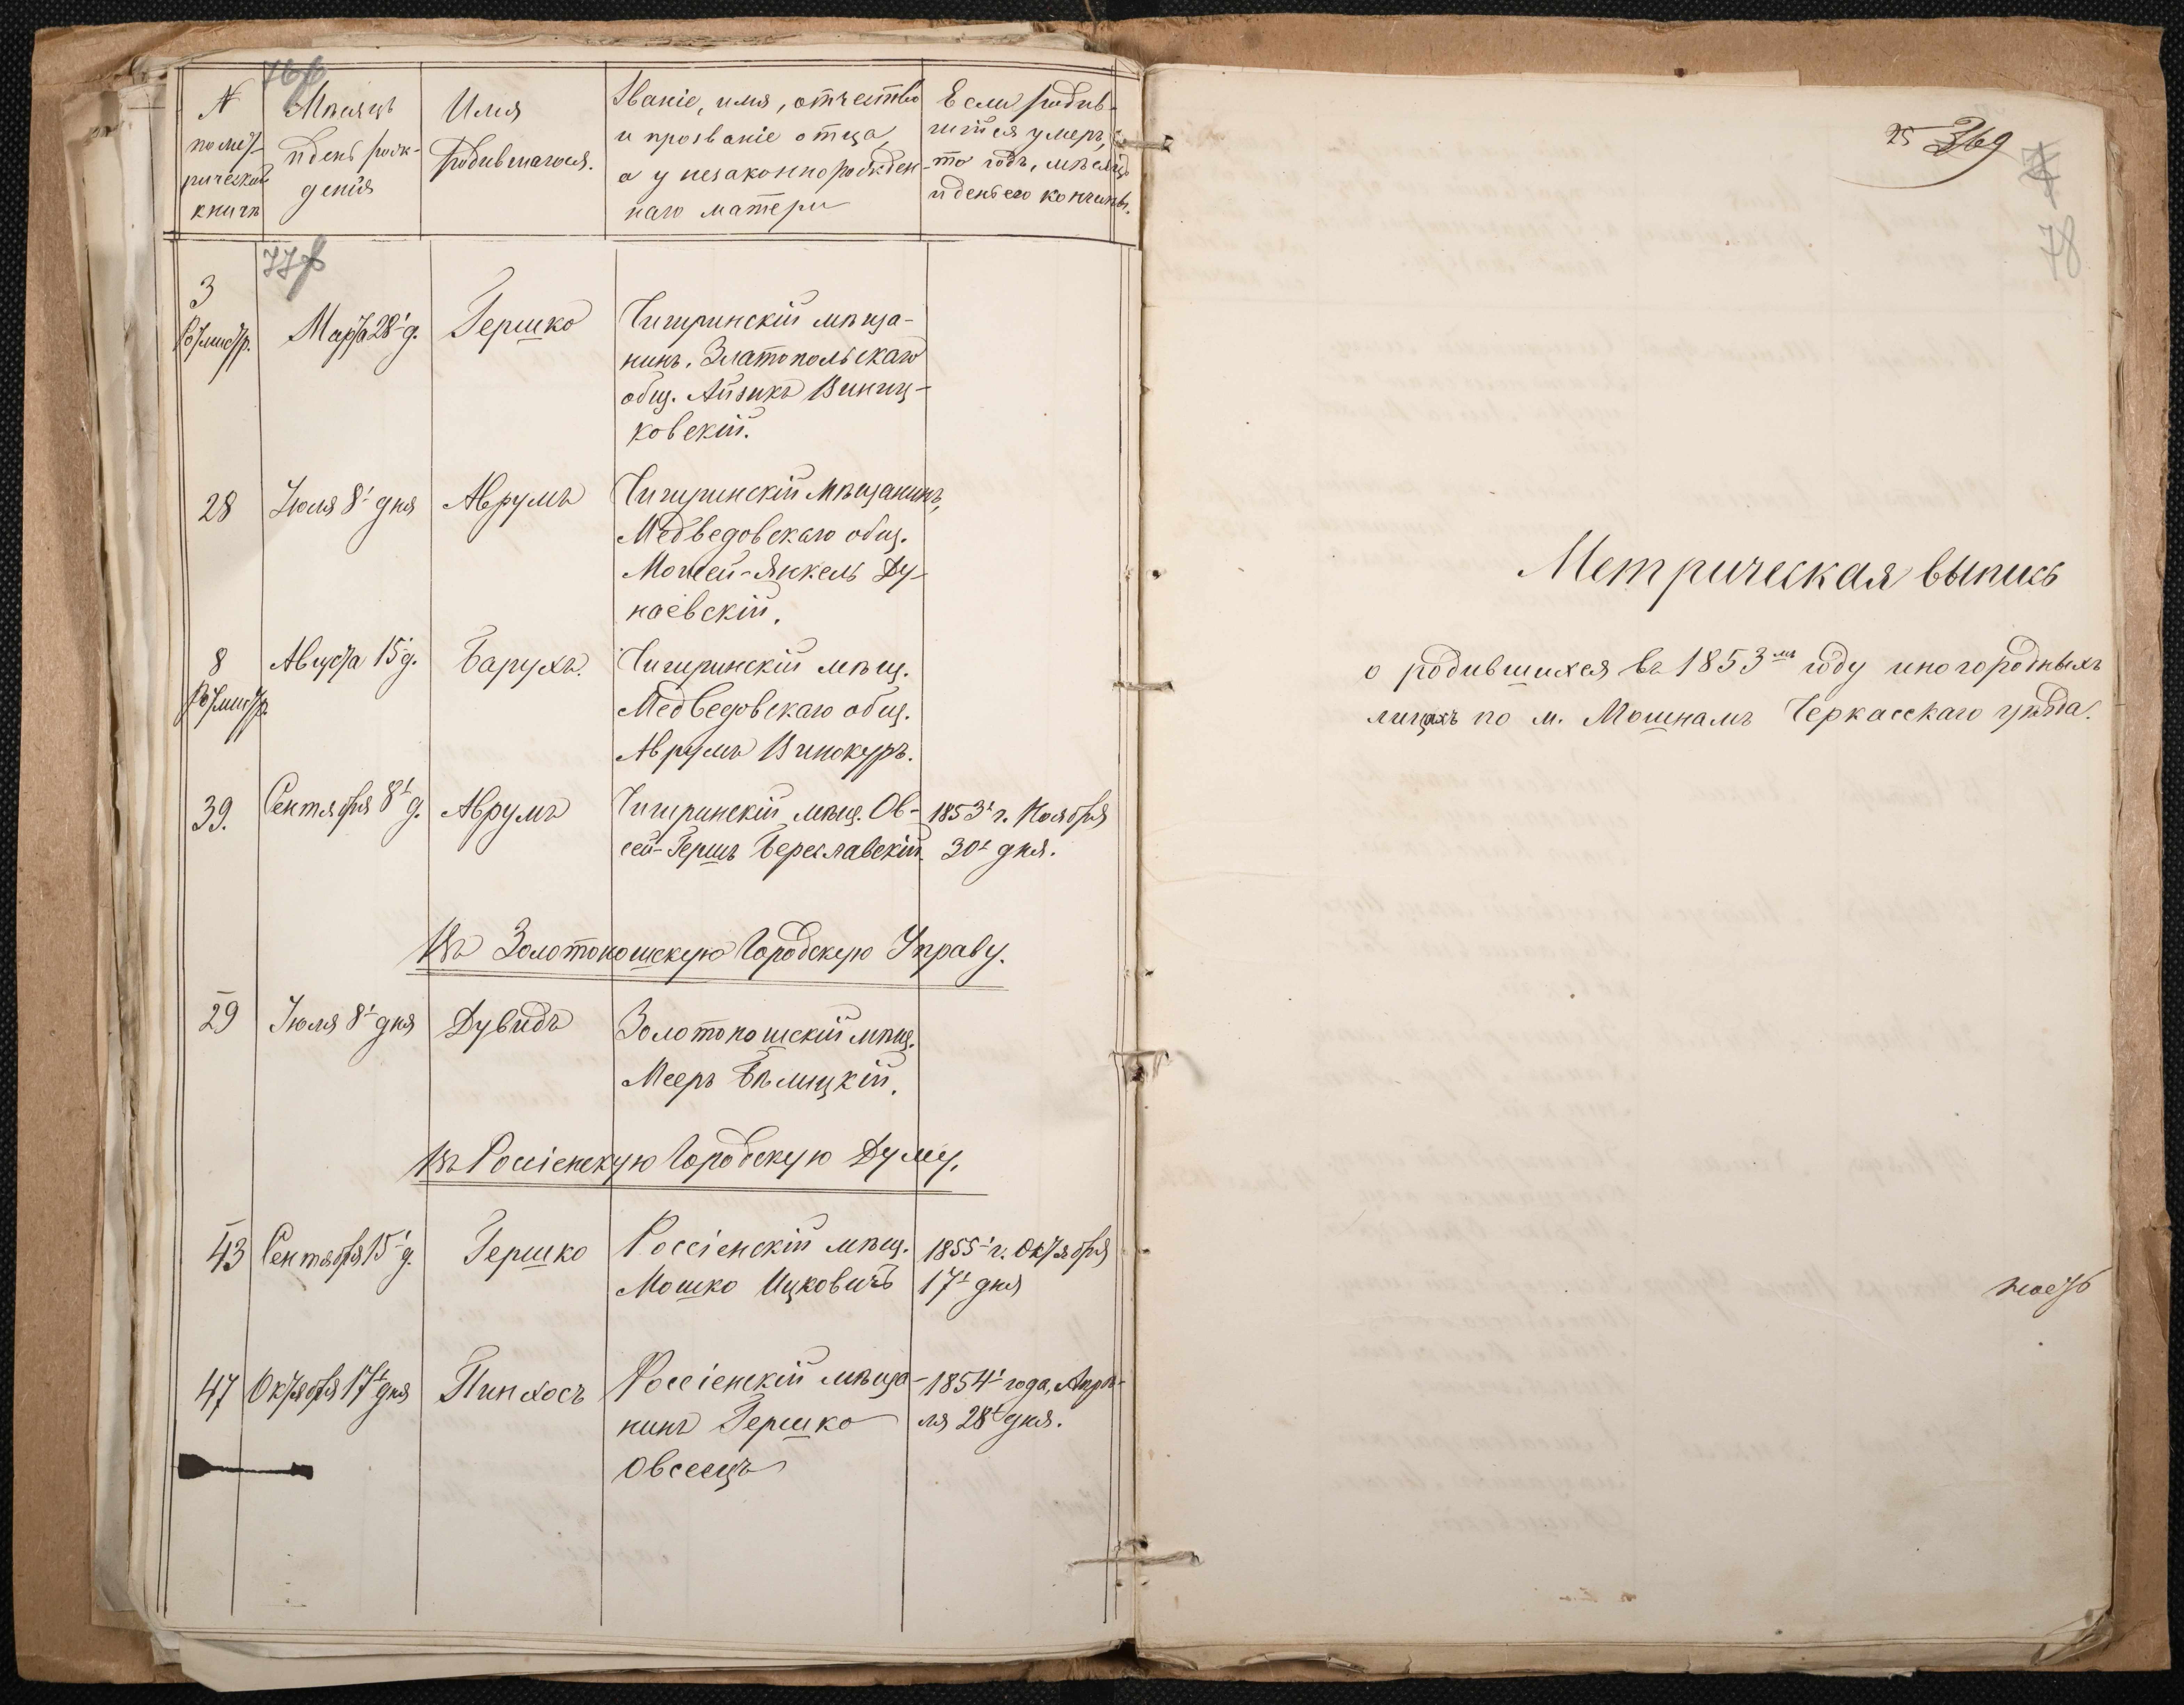 N
по мет-
рической
книгѣ
Мѣсяцъ
и день рож-
денія
Имя
родившагося.
Званіе, имя, отчество
и прозваніе отца,
а у незаконнорожден-
наго матери
Если родив-
шійся умеръ,
то годъ, мѣсяцъ
и день его кончины.
77
3
Марта 28 д.
Гершко
Чигиринскій мѣща-
нинъ. Златопольскаго
общ. Айзикъ Виниц-
ковскій.
28
Іюля 8 дня
Аврумъ
Чигиринскій мѣщанинъ,
Медведовскаго общ.
Мошей-Янкель Ду-
наевскій.
8
Августа 15 д.
Барухъ.
Чигиринскій мѣщ.
Медведовскаго общ.
Аврумъ Винокуръ.
39.
Сентября 8 д.
Аврумъ
Чигиринскій мѣщ. Ов-
сей-Гершъ Береславскій.
1853 г. Ноября
30 дня.
Въ Золотоношскую Городскую Управу.
29
Іюля 8 дня
Дувидъ
Золотоношскій мѣщ.
Мееръ Бѣлицкій.
Въ Россіенскую Городскую Думу.
43
Сентября 15 д.
Гершко
Россіенскій мѣщ.
Мошко Ицковичъ
1855 г. Октября
17 дня
47
Октября 17 дня
Пинхосъ
Россіенскій мѣща-
нинъ Гершко
Овсеецъ
1854 года, Апрѣ-
ля 28 дня.
25 369
78
Метрическая выпись
о родившихся въ 1853мъ году иногородныхъ
лицахъ по м. Мошнамъ Черкасскаго уѣзда.